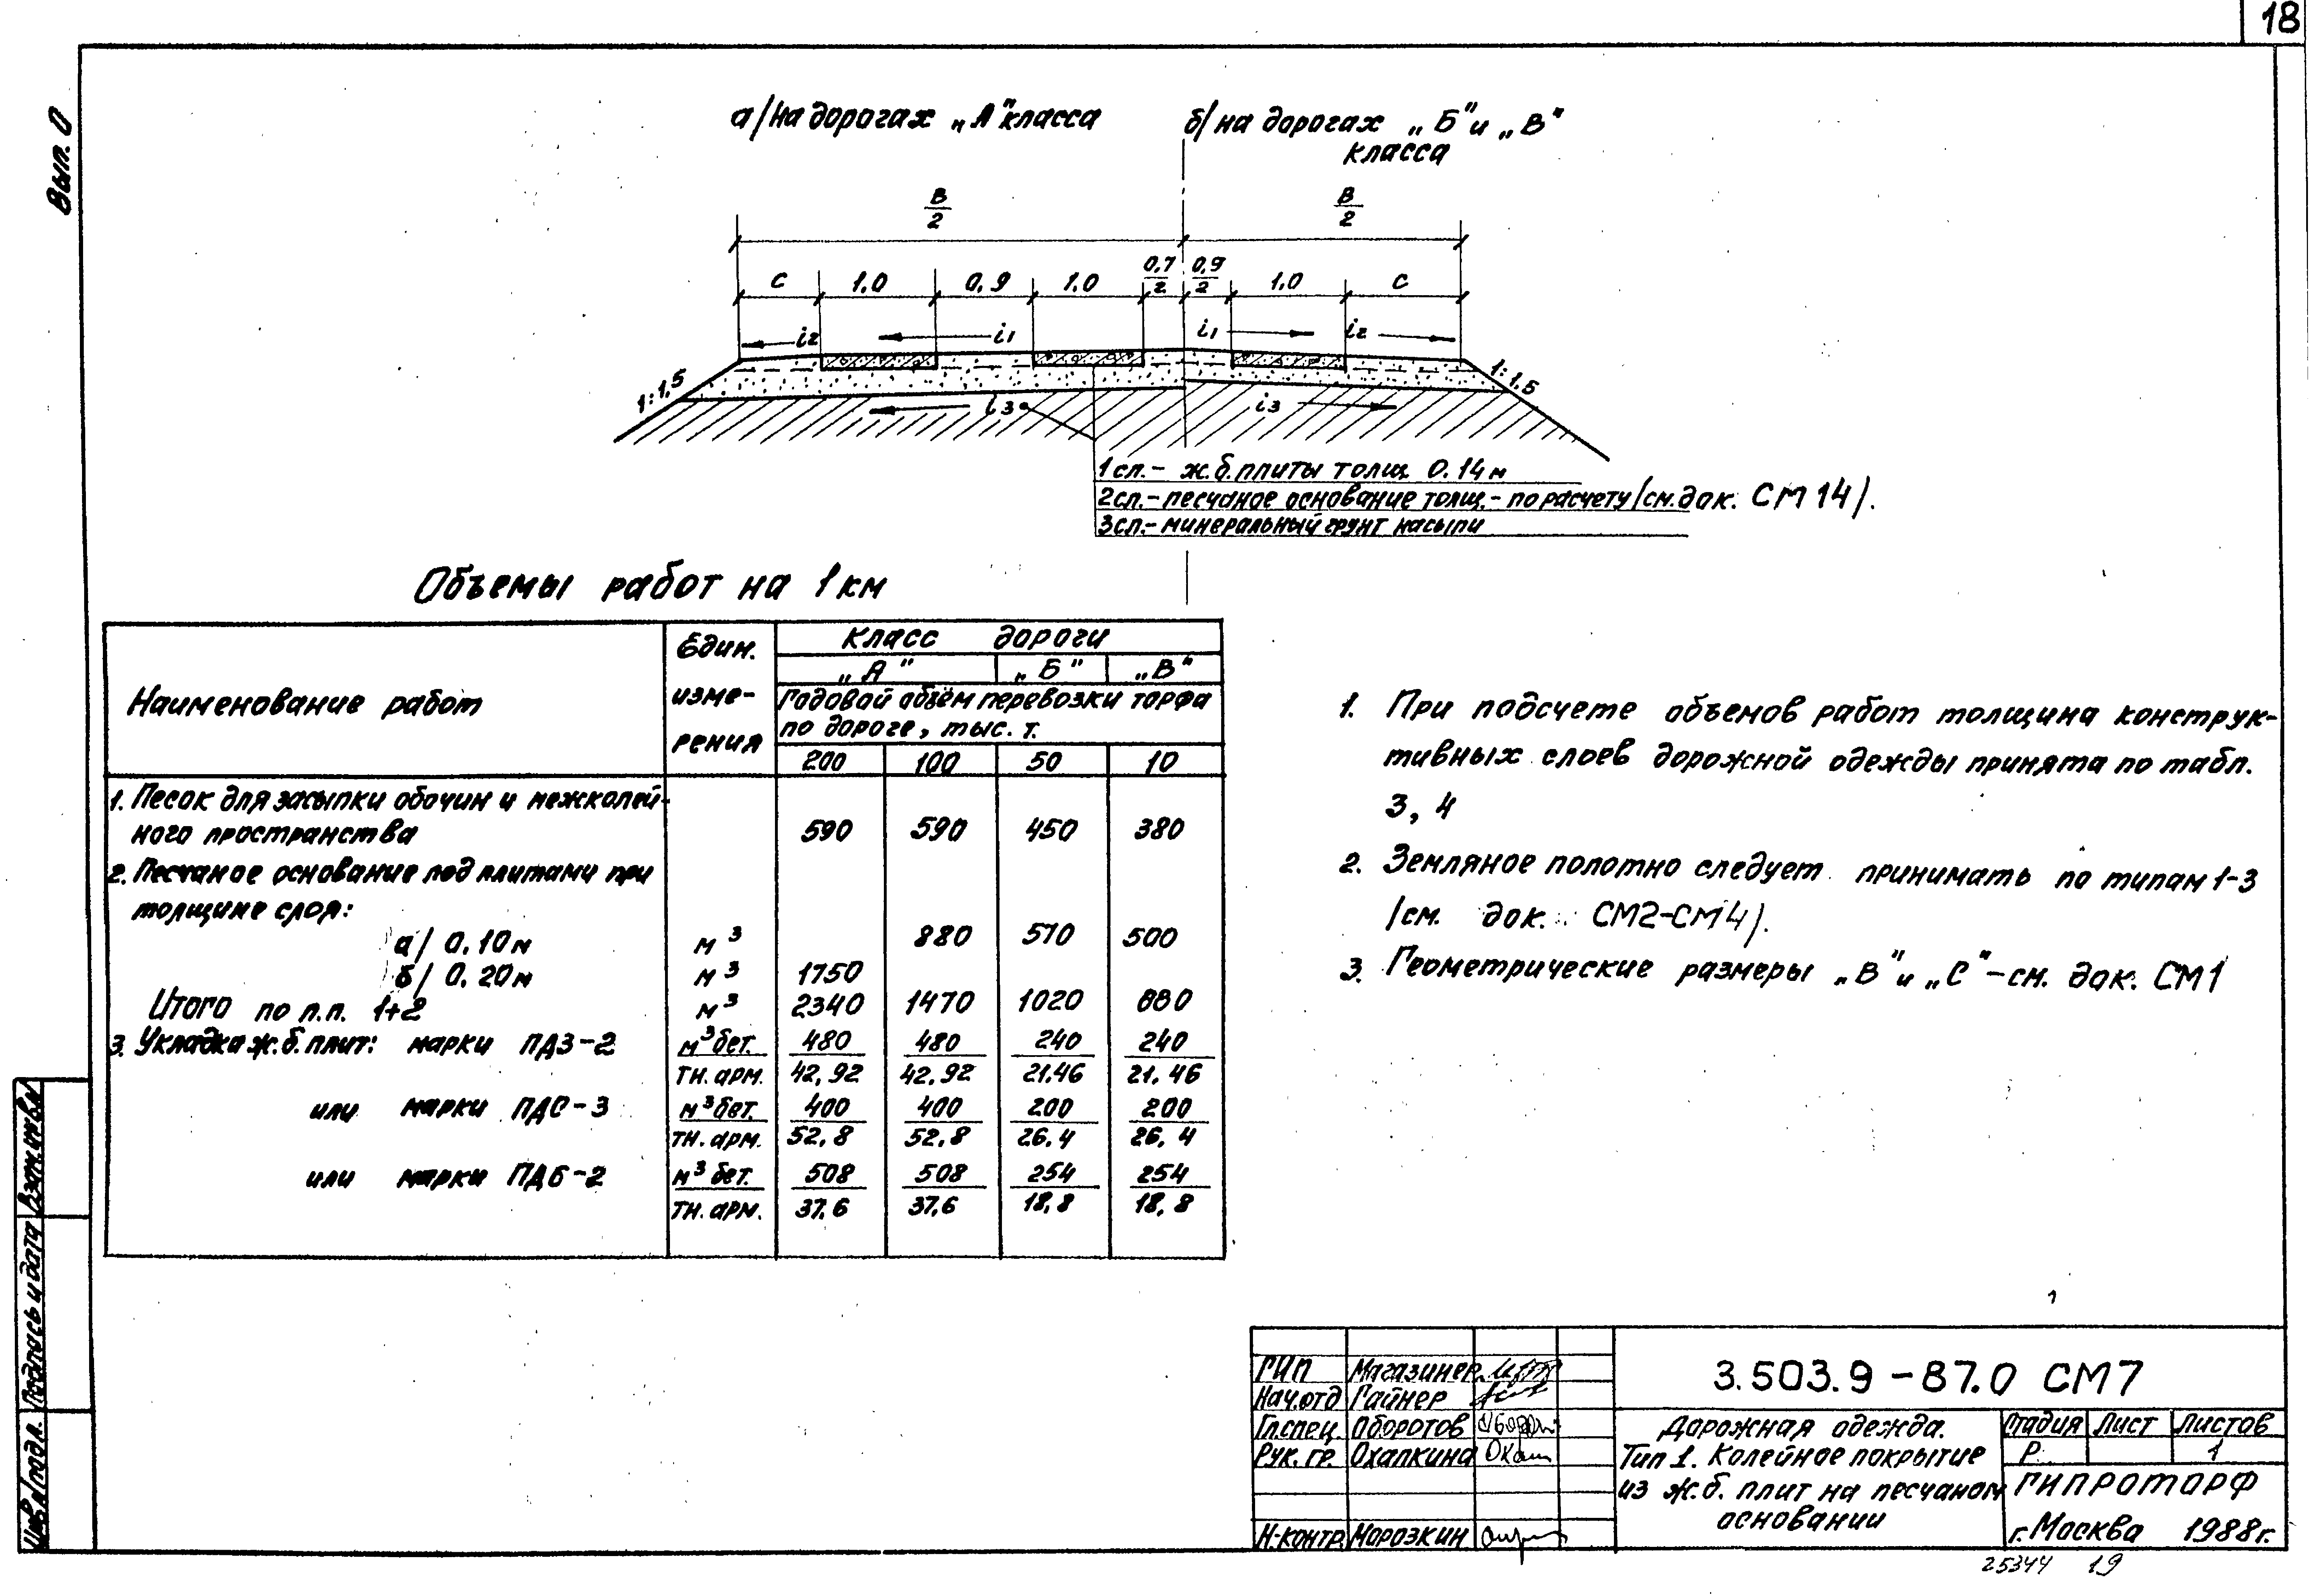 18
Вып. 0
а/ на дорогах „А" класса
б/ на дорогах „Б" и „В"
класса
В/2
В/2
с 1.0 0,9 1.0 0,7/2 0,9/2 1.0 с
i2 i1 i1 i2
1:1,5
1:1,5
i3 i3
1сл.- ж.б.плиты толщ. 0.14м
2сл.- песчаное основание толщ.- по расчету/см.док. СМ14/.
3сл.- минеральный грунт насыпи
Объемы работ на 1 км
Наименование работ
Един. изме- рения
Класс дороги
„А" „Б" „В"
Годовой объём перевозки торфа
по дороге, тыс. т.
200 100 50 10
1. Песок для засыпки обочин и межколей-
ного пространства 590 590 450 380
2. Песчаное основание под плитами при
толщине слоя:
а/ 0.10м м³ 880 570 500
б/ 0.20м м³ 1750
Итого по п.п. 1+2 м³ 2340 1470 1020 880
3. Укладка ж.б.плит: марки ПД3-2 м³бет. 480 480 240 240
тн.арм. 42,92 42,92 21.46 21.46
или марки ПДС-3 м³бет. 400 400 200 200
тн.арм. 52,8 52,8 26.4 26,4
или марки ПД6-2 м³бет. 508 508 254 254
тн.арм. 37.6 37,6 18,8 18,8
1. При подсчете объемов работ толщина конструк-
тивных слоев дорожной одежды принята по табл.
3, 4
2. Земляное полотно следует принимать по типам 1-3
/см. док. СМ2-СМ4/.
3. Геометрические размеры „В" и „С" - см. док. СМ1
Инв.№подл. Подпись и дата Взам.инв.№
ГИП Магазинер
Нач.отд Гайнер
Гл.спец. Оборотов
Рук.гр. Охапкина
Н-контр. Морозкин
3.503.9-87.0 СМ7
Дорожная одежда.
Тип 1. Колейное покрытие
из ж.б. плит на песчаном
основании
Стадия Лист Листов
Р 1
ГИПРОТОРФ
г.Москва 1988г.
25344 19